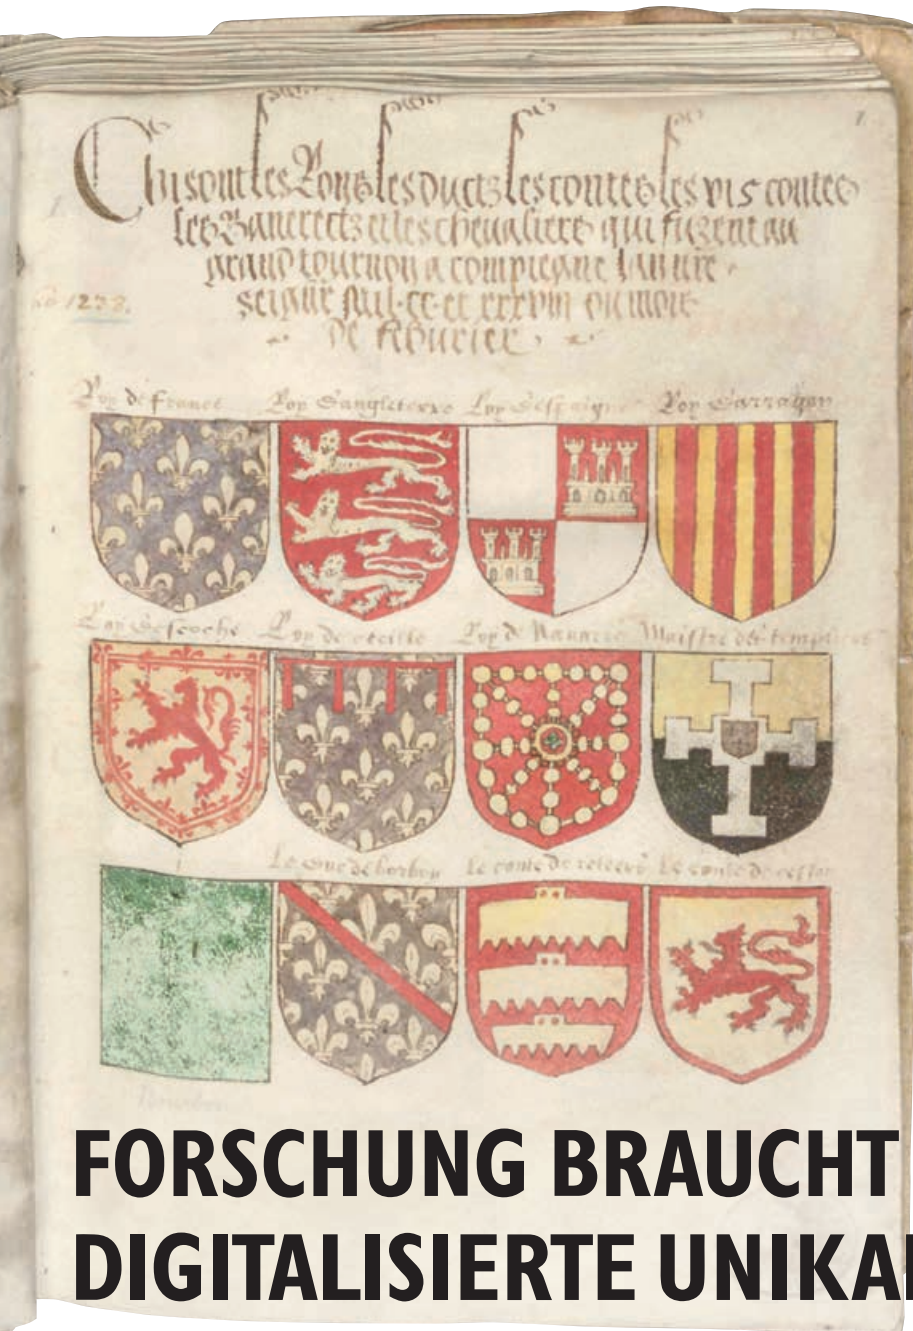 Chi sont les Roys les ducts les contes les vis contes
les Banerects et les chevaliers qui furent au
grand tournoy a compiegne lan nre
seignr mil.cc.et xxxviii ou mois
de febvrier
1238.
Roy de france Roy dangleterre Roy despaigne Roy darragon
Roy descoche Roy de cecille Roy de Navarre Maistre des templiers
Le duc de borbon le conte de le conte de
Bourbon
FORSCHUNG BRAUCHT
DIGITALISIERTE UNIKA